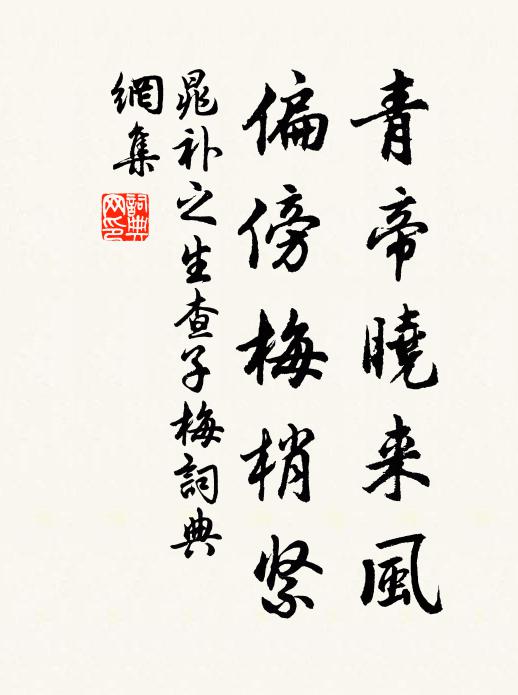 青帝曉来風
偏傍梅梢紧
晁补之生查子梅詞典
網集
詞典
网印